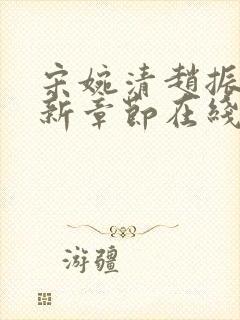 宋婉清趙振
新章節在綫
游疆